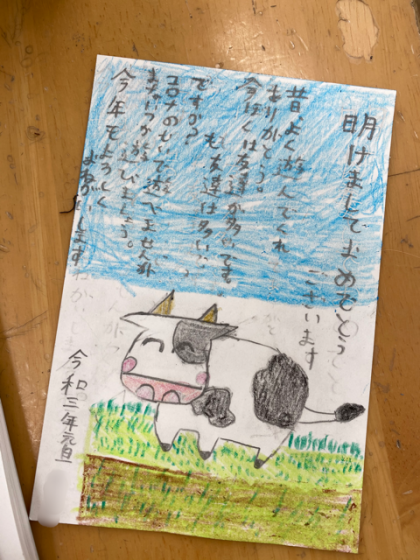 明けましておめでとう
ございます
昔、よく遊んでくれ
ありがとう。
今ぼくは友達が多いです
も友達は多い
ですか?
コロナのせいで遊べませんが
またいつか遊びましょう。
今年もよろしく
おねがいします
令和三年元旦